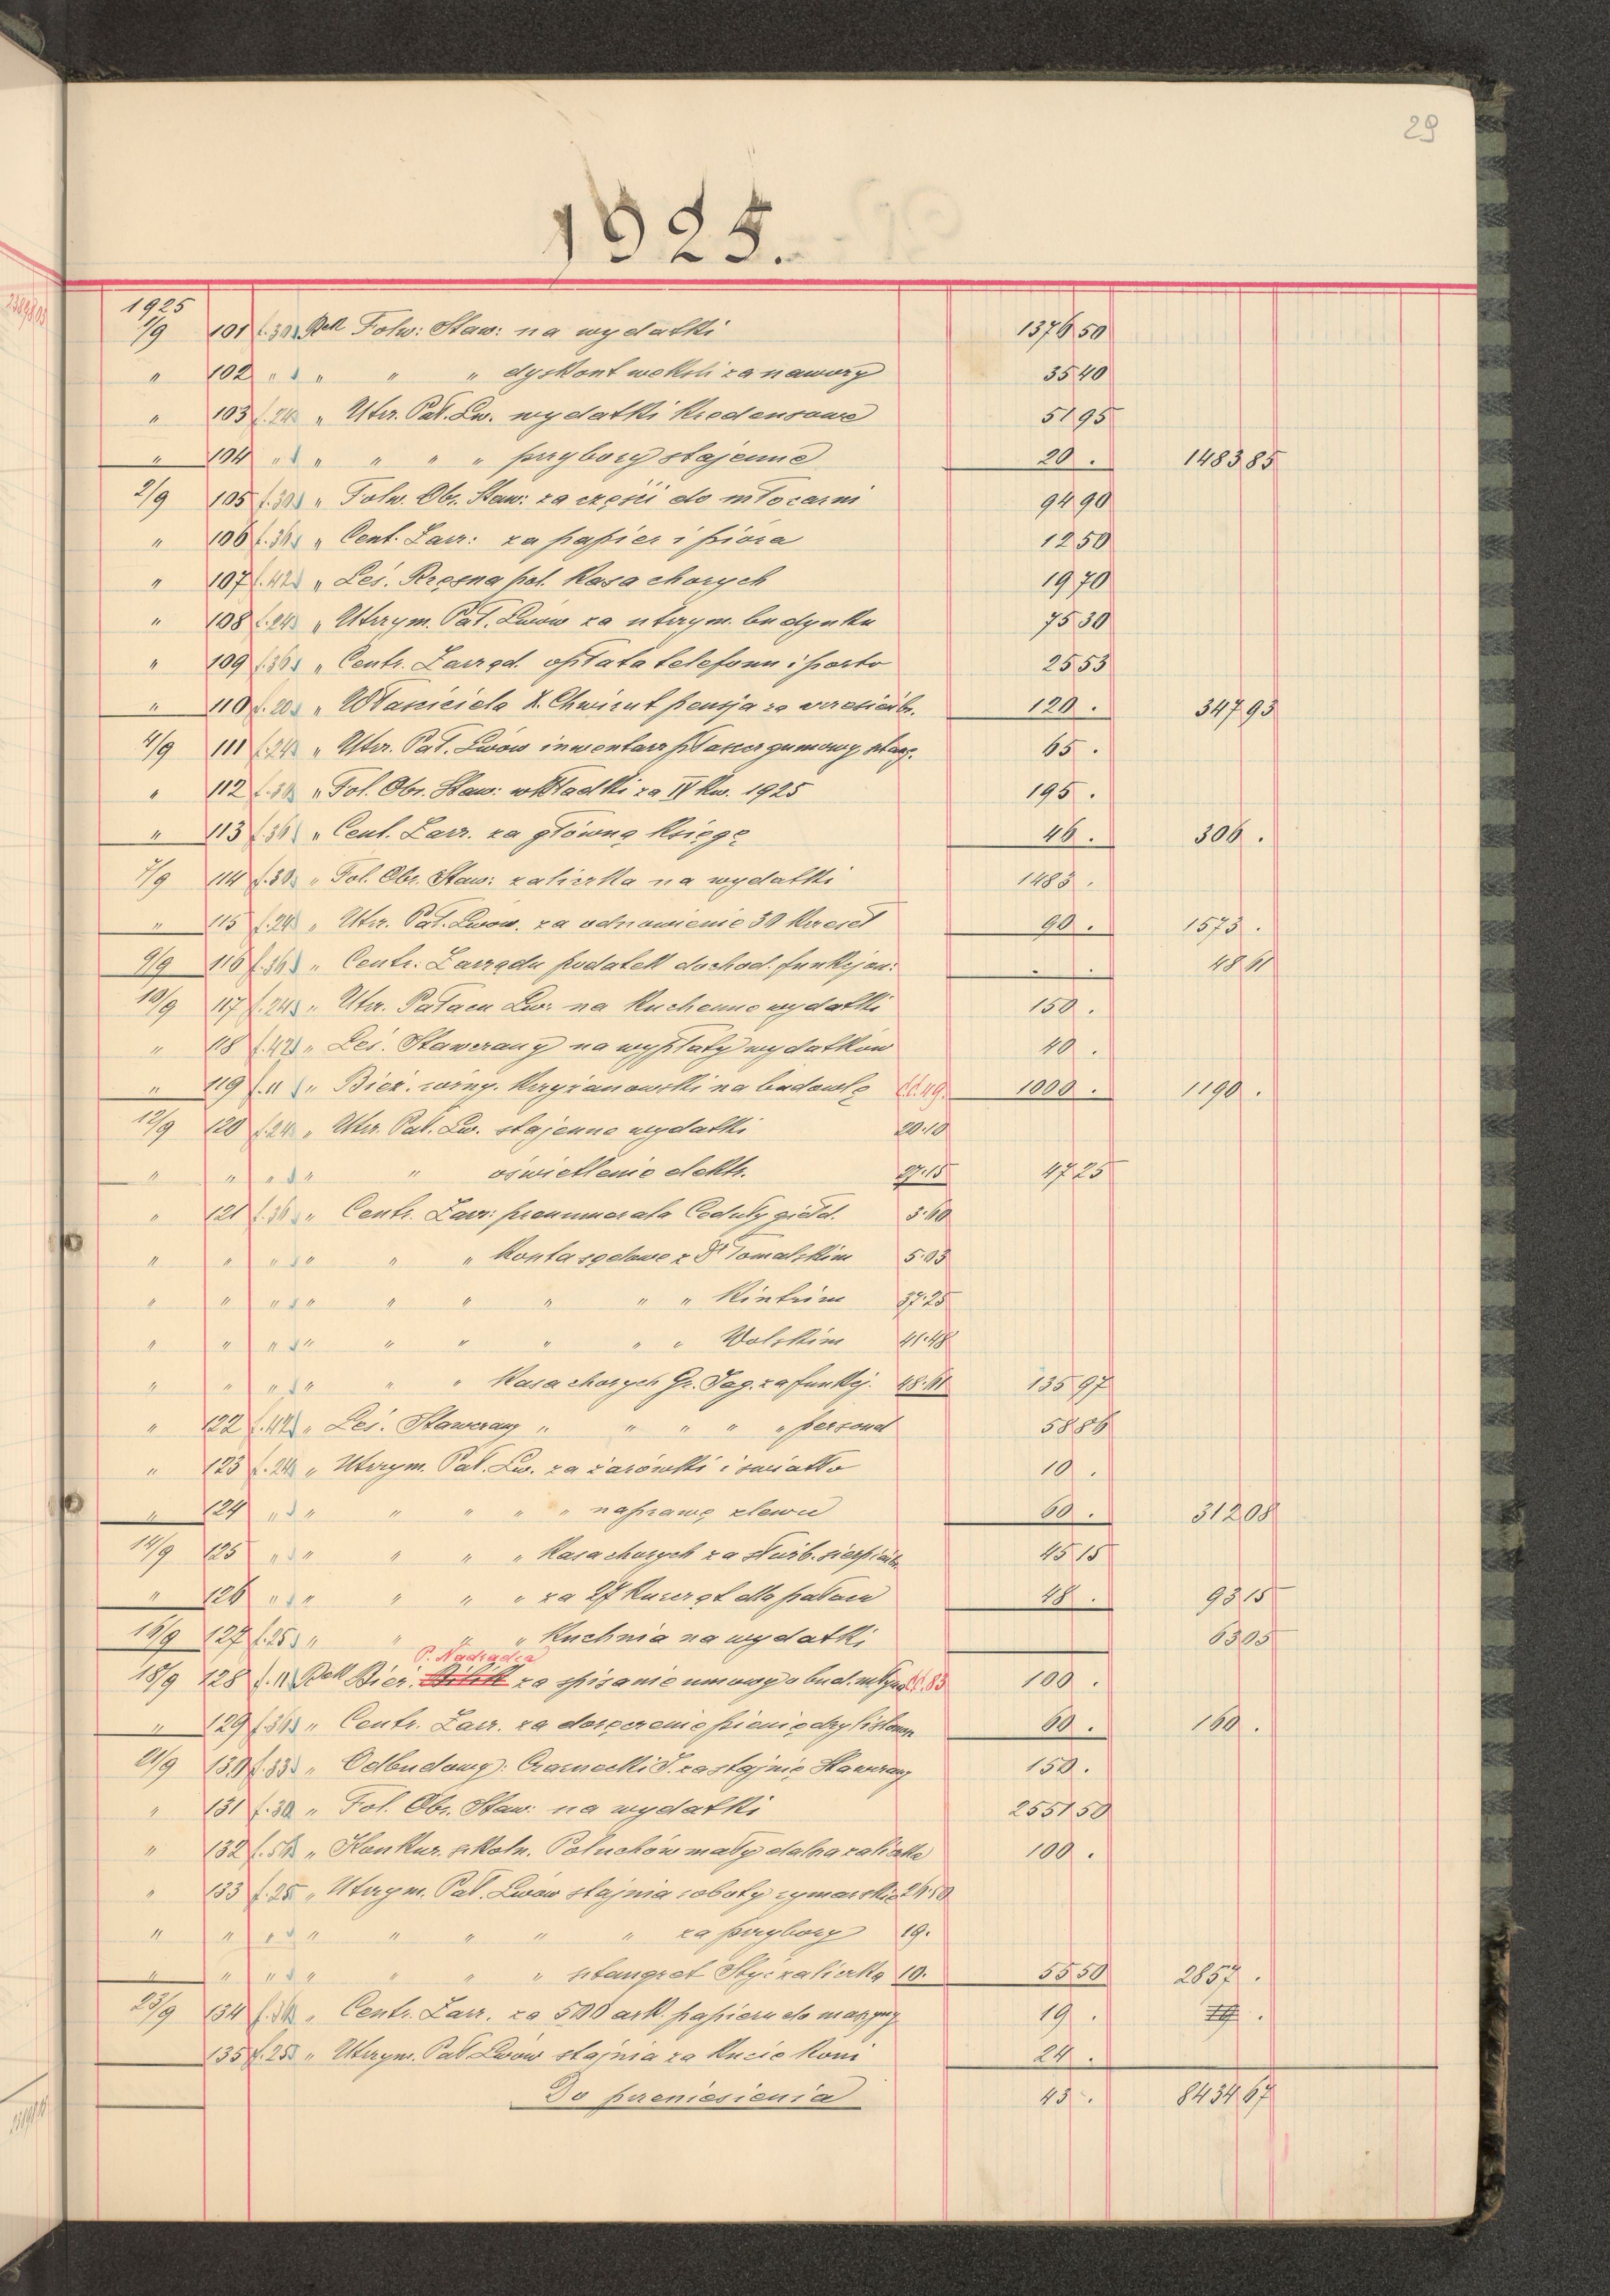 29
1925.
1925
1/9 101 f. 30 Rek Folw: Staw: na wydatki 1376 50
" 102 " " " " dyskont weksli za nawozy 35 40
" 103 f. 24 " Utrz. Pał. Lw. wydatki kredensowe 51 95
" 104 " " " " " przybory stajenne 20 . 1483 85
2/9 105 f. 30 " Folw. Obr. Staw: za części do młocarni 94 90
" 106 f. 36 " Cent. Zarz: za papier i pióra 12 50
" 107 f. 42 " Leś. Rzęsna pol. Kasa chorych 19 70
" 108 f. 24 " Utrzym. Pał. Lwów za utrzym. budynku 75 30
" 109 f. 36 " Centr. Zarząd. opłata telefonu i porto 25 53
" 110 f. 20 " Właściciela X. Chwirut pensja za wrzesień br. 120 . 347 93
4/9 111 f. 24 " Utrz. Pał. Lwów inwentarz płaszcz gumowy 65 .
" 112 f. 30 " Fol. Obr. Staw: wkładki za IV kw. 1925 195 .
" 113 f. 36 " Cent. Zarz. za główną księgę 46 . 306 .
7/9 114 f. 30 " Fol. Obr. Staw: zaliczka na wydatki 1483 .
" 115 f. 24 " Utrz. Pał. Lwów. za odnowienie 30 krzeseł 90 . 1573 .
9/9 116 f. 36 " Centr. Zarządu podatek dochod. funkcjon: . . 48 61
10/9 117 f. 24 " Utrz. Pałacu Lw: na kuchenne wydatki 150 .
" 118 f. 42 " Leś. Stawczany na wypłaty wydatków 40 .
" 119 f. 11 " Bież. inż. Krzyżanowski na budowlę d.d. 49. 1000 . 1190 .
12/9 120 f. 24 " Utrz. Pał. Lw. stajenne wydatki 20.10
" " " " " oświetlenie elektr. 27.15 47 25
" 121 f. 36 " Centr. Zarz: prenumerata Ceduły giełd. 3.60
" " " " " " Konta sądowe z Dr Tomalskim 5.03
" " " " " " " " " Kintzim 37.25
" " " " " " " " " Wolskim 41.48
" " " " " " Kasa chorych Gr. Jag. za funkcj. 48.61 135 97
" 122 f. 42 " Leś. Stawczany " " " " " personal 58 86
" 123 f. 24 " Utrzym. Pał. Lw. za żarówki i światło 10 .
" 124 " " " " " " naprawę zlewu 60 . 312 08
14/9 125 " " " " " Kasa chorych za służb. sierpień br. 45 15
" 126 " " " " " za 24 kurcząt dla pałacu 48 . 93 15
16/9 127 f. 25 " " " " Kuchnia na wydatki 63 05
P. Nadradca
18/9 128 f. 11 Rek Bież. Bilik za spisanie umowy o bud. młyna d.d. 83 100 .
" 129 f. 36 " Centr. Zarz. za doręczenie pieniędzy listown. 60 . 160 .
21/9 130 f. 33 " Odbudowy: Czarnecki J. za stajnię Stawczany 150 .
" 131 f. 30 " Fol. Obr. Staw: na wydatki 2551 50
" 132 f. 5 " Konkur. szkoln. Połuchów mały dalsza zaliczka 100 .
" 133 f. 25 " Utrzym. Pał. Lwów stajnia roboty rymarskie 26.50
" " " " " " " " za przybory 19.
" " " " " " " sztangret Styś zaliczka 10. 55 50 2857 .
23/9 134 f. 36 " Centr. Zarz. za 500 ark. papieru do maszyny 19 . 19 .
135 f. 25 " Utrzym. Pał Lwów stajnia za kucie koni 24 .
Do przeniesienia 43 . 8434 67